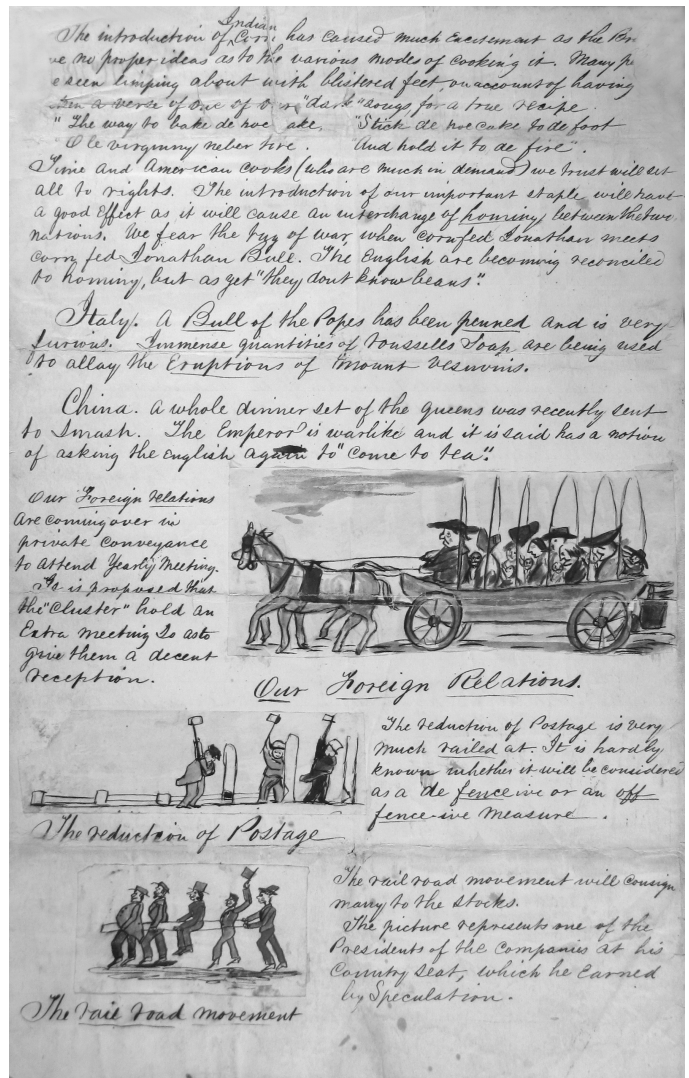 The introduction of Indian Corn has caused much Excitement as the Br
ve no proper ideas as to the various modes of cooking it. Many pe
e seen limping about with blistered feet, on account of having
a verse of one of our "dark" songs, for a true recipe.
"The way to bake de hoe ake "Stick de hoe cake to de foot
"Ole virginny neber tire. And hold it to de fire".
Time and American cooks (who are much in demand) we trust will set
all to rights. The introduction of our important staple will have
a good Effect as it will cause an interchange of homing between the two
nations. We fear the tug of war, when cornfed Jonathan meets
corn fed Jonathan Bull. The English are becoming reconciled
to homing, but as yet "they dont know beans".
Italy. A Bull of the Popes has been penned and is very
furious. Immense quantities of Roussells Soap are being used
to allay the Eruptions of Mount Vesuvius.
China. A whole dinner set of the queens was recently sent
to Smash. The Emperor is warlike and it is said has a notion
of asking the English again to "come to tea".
Our Foreign relations
are coming over in
private conveyance
to attend Yearly Meeting.
It is proposed that
the "Cluster" hold an
Extra meeting So as to
give them a decent
reception.
Our Foreign Relations.
The reduction of Postage is very
much railed at. It is hardly
known whether it will be considered
as a de fence ive or an off
fence-ive measure.
The reduction of Postage
The rail road movement will consign
many to the stocks.
The picture represents one of the
Presidents of the Companies at his
Country seat, which he earned
by Speculation.
The rail road movement